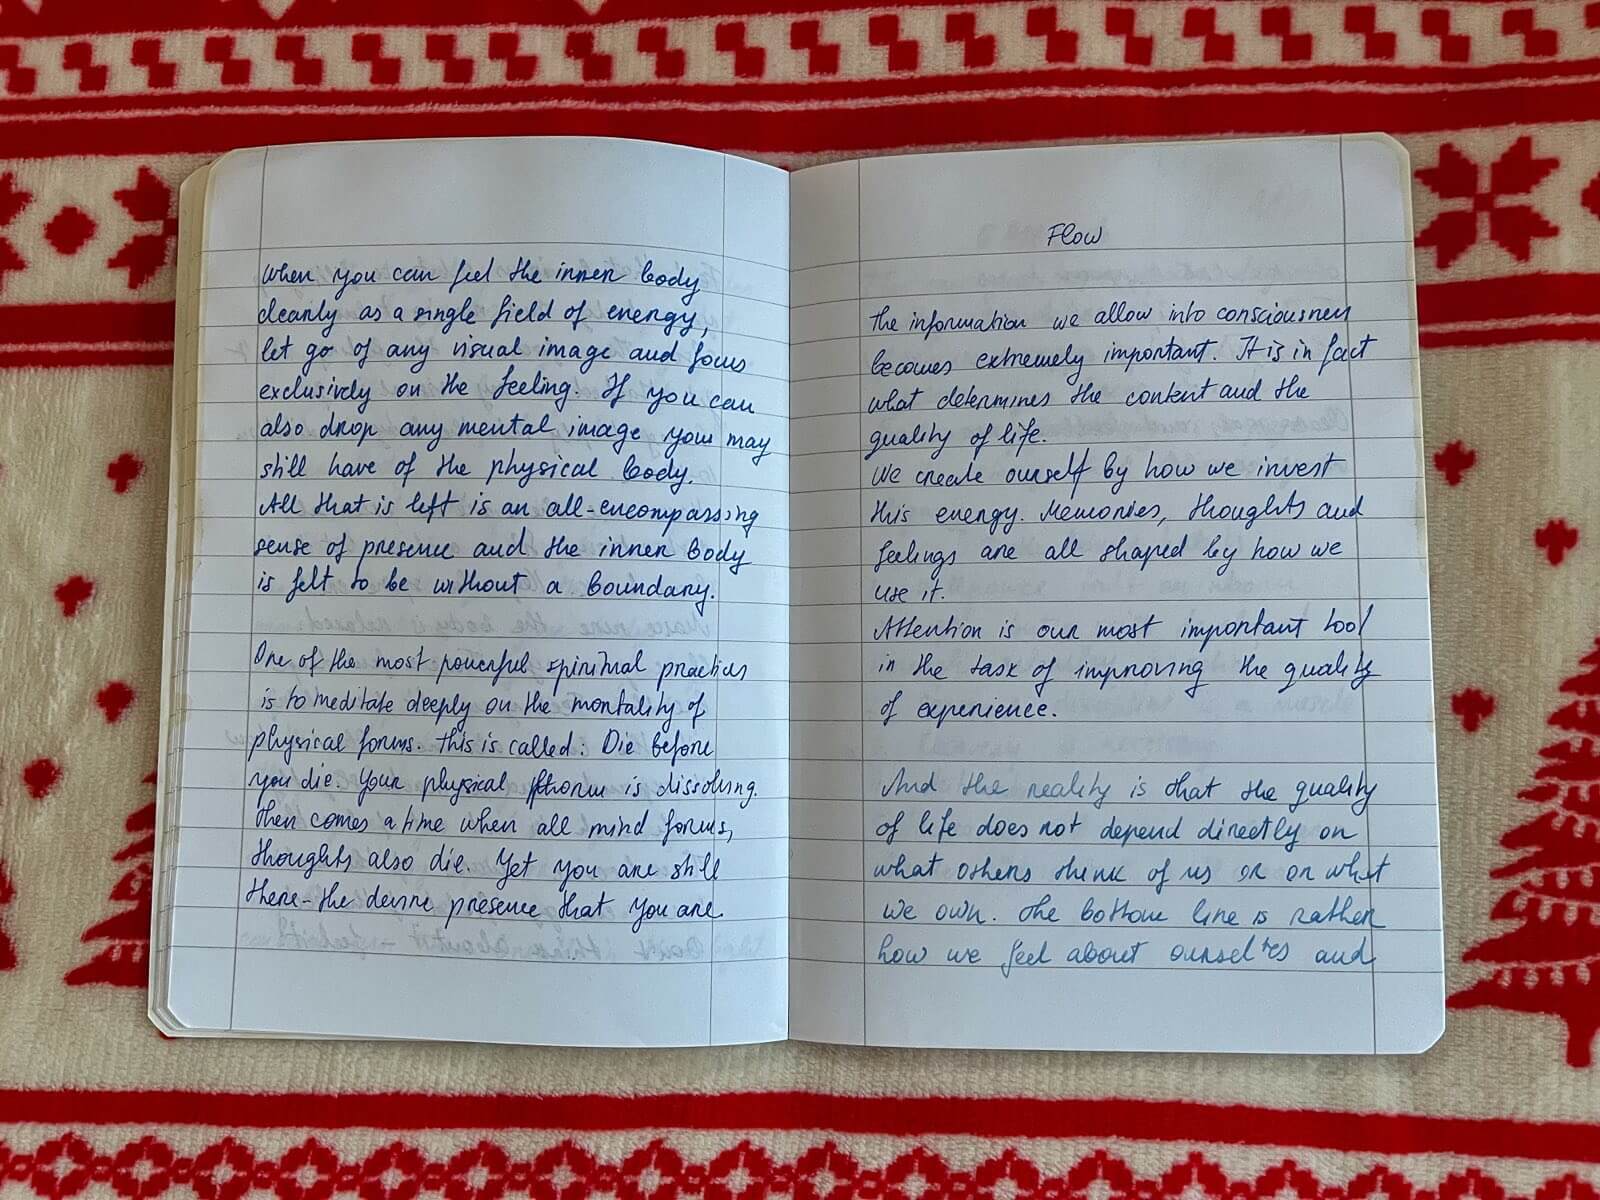 When you can feel the inner body
clearly as a single field of energy,
let go of any visual image and focus
exclusively on the feeling. If you can
also drop any mental image your may
still have of the physical body.
All that is left is an all-encompassing
sense of presence and the inner body
is felt to be without a boundary.
One of the most powerful spiritual practices
is to meditate deeply on the mortality of
physical forms. This is called: Die before
you die. Your physical form is dissolving.
Then comes a time when all mind forms,
thoughts also die. Yet you are still
there - the devine presence that you are.
Flow
The information we allow into consciousness
becomes extremely important. It is in fact
what determines the content and the
quality of life.
We create ourself by how we invest
this energy. Memories, thoughts and
feelings are all shaped by how we
use it.
Attention is our most important tool
in the task of improving the quality
of experience.
And the reality is that the quality
of life does not depend directly on
what others think of us or on what
we own. The bottom line is rather
how we feel about ourselves and